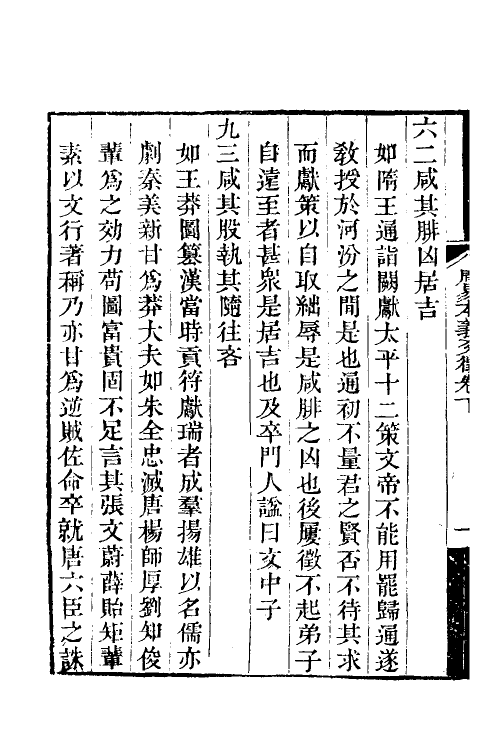 周易本義爻徵卷下
一
六二咸其腓凶居吉
如隋王通詣闕獻太平十二策文帝不能用罷歸通遂
敎授於河汾之間是也通初不量君之賢否不待其求
而獻策以自取絀辱是咸腓之凶也後屢徵不起弟子
自遠至者甚衆是居吉也及卒門人諡曰文中子
九三咸其股執其隨往吝
如王莽圖簒漢當時貢符獻瑞者成羣揚雄以名儒亦
劇秦美新甘爲莽大夫如朱全忠滅唐楊師厚劉知俊
輩爲之効力苟圖富貴固不足言其張文蔚薛貽矩輩
素以文行著稱乃亦甘爲逆賊佐命卒就唐六臣之誅